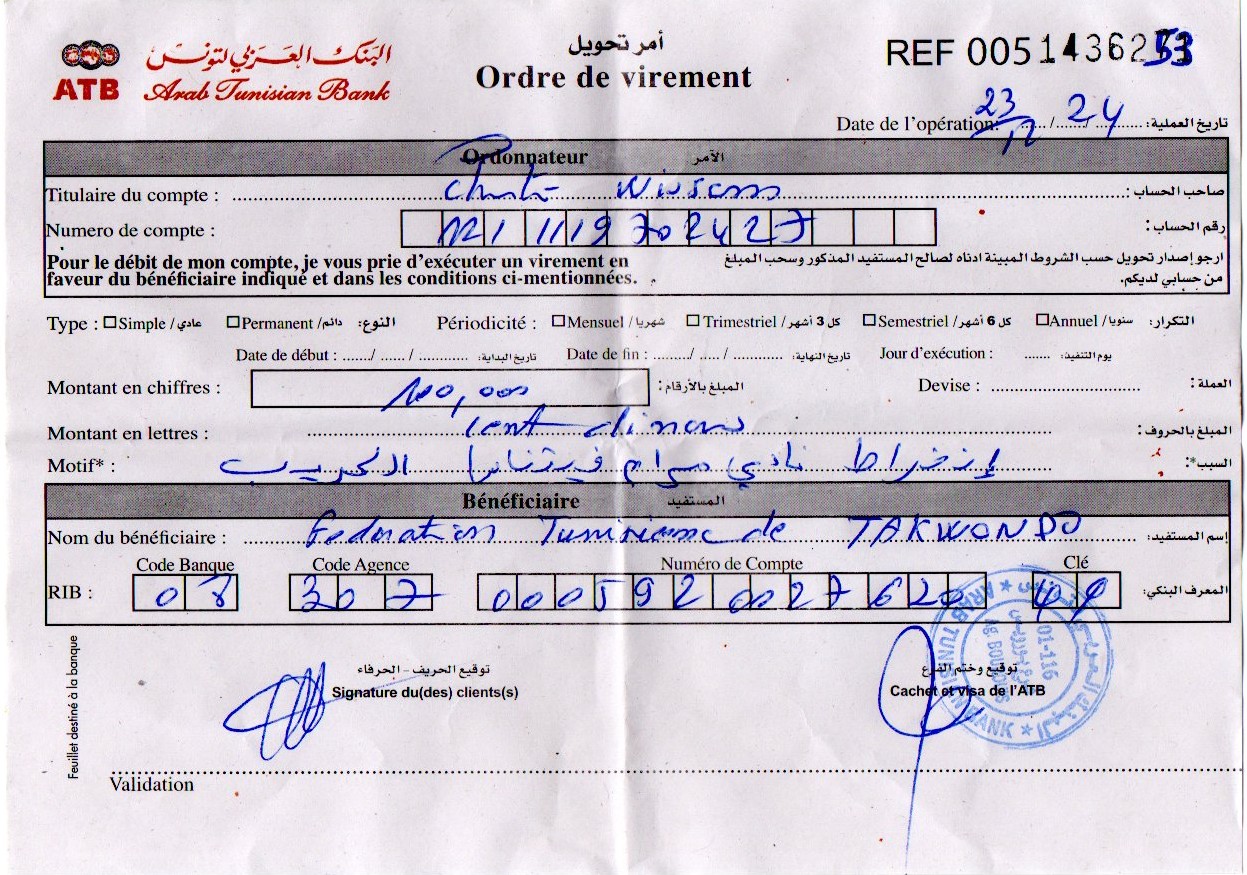 ATB البنك العربي لتونس
Arab Tunisian Bank
أمر تحويل
Ordre de virement
REF 005143627 53
Date de l'opération: 23/12/24 تاريخ العملية:
Ordonnateur الآمر
Titulaire du compte : صاحب الحساب :
Numero de compte : رقم الحساب :
Pour le débit de mon compte, je vous prie d'exécuter un virement en
faveur du bénéficiaire indiqué et dans les conditions ci-mentionnées.
ارجو إصدار تحويل حسب الشروط المبينة ادناه لصالح المستفيد المذكور وسحب المبلغ
من حسابي لديكم.
Type : Simple / عادي Permanent / دائم النوع: Périodicité : Mensuel / شهريا Trimestriel / كل 3 أشهر Semestriel / كل 6 أشهر Annuel / سنويا التكرار:
Date de début : ....../ ...... / ............ تاريخ البداية: Date de fin : ......../ ..... / ............ تاريخ النهاية: Jour d'exécution : ....... يوم التنفيذ:
Montant en chiffres : 100,000 المبلغ بالأرقام: Devise : العملة:
Montant en lettres : Cent dinars المبلغ بالحروف:
Motif* : إنخراط نادي مرام فيتناس السبب*:
Bénéficiaire المستفيد
Nom du bénéficiaire : Federation Tunisienne de TAKWONDO إسم المستفيد:
Code Banque Code Agence Numéro de Compte Clé
RIB : 03 307 0005920027620 المعرف البنكي:
توقيع الحريف - الحرفاء
Signature du(des) clients(s)
توقيع وختم الفرع
Cachet et visa de l'ATB
ARAB TUNISIAN BANK
01-116
Validation
Feuillet destiné à la banque